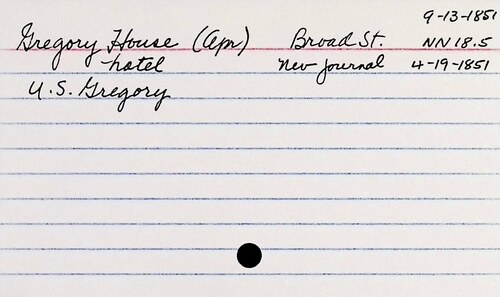 9-13-1851
Gregory House (Apr) Broad St. NN 18.5
hotel Nev Journal 4-19-1851
U.S. Gregory